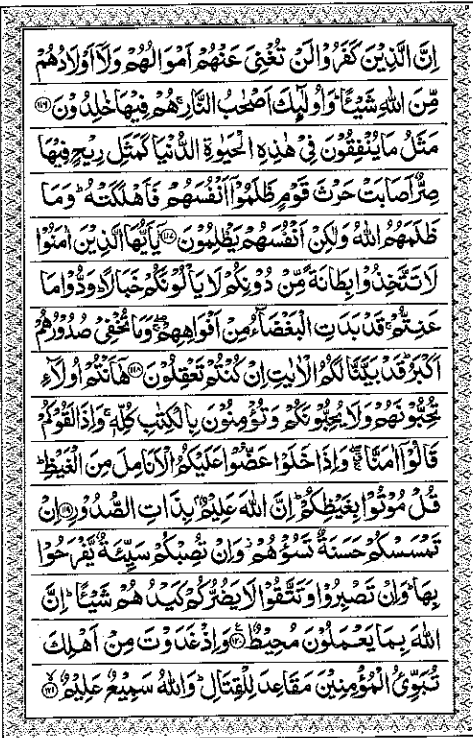 اِنَّ الَّذِیۡنَ کَفَرُوۡا لَنۡ تُغۡنِیَ عَنۡهُمۡ اَمۡوَالُهُمۡ وَلَاۤ اَوۡلَادُهُمۡ
مِّنَ اللّٰهِ شَیۡـًٔا ؕ وَاُولٰٓئِکَ اَصۡحٰبُ النَّارِ ۚ هُمۡ فِیۡهَا خٰلِدُوۡنَ ﴿۱۱۶﴾
مَثَلُ مَا یُنۡفِقُوۡنَ فِیۡ هٰذِهِ الۡحَیٰوةِ الدُّنۡیَا کَمَثَلِ رِیۡحٍ فِیۡهَا
صِرٌّ اَصَابَتۡ حَرۡثَ قَوۡمٍ ظَلَمُوۡۤا اَنۡفُسَهُمۡ فَاَهۡلَکَتۡهُ ؕ وَمَا
ظَلَمَهُمُ اللّٰهُ وَلٰکِنۡ اَنۡفُسَهُمۡ یَظۡلِمُوۡنَ ﴿۱۱۷﴾ یٰۤاَیُّهَا الَّذِیۡنَ اٰمَنُوۡا
لَا تَتَّخِذُوۡا بِطَانَةً مِّنۡ دُوۡنِکُمۡ لَا یَاۡلُوۡنَکُمۡ خَبَالًا ؕ وَدُّوۡا مَا
عَنِتُّمۡ ۚ قَدۡ بَدَتِ الۡبَغۡضَآءُ مِنۡ اَفۡوَاهِهِمۡ ۖۚ وَمَا تُخۡفِیۡ صُدُوۡرُهُمۡ
اَکۡبَرُ ؕ قَدۡ بَیَّنَّا لَکُمُ الۡاٰیٰتِ اِنۡ کُنۡتُمۡ تَعۡقِلُوۡنَ ﴿۱۱۸﴾ هٰۤاَنۡتُمۡ اُولَآءِ
تُحِبُّوۡنَهُمۡ وَلَا یُحِبُّوۡنَکُمۡ وَتُؤۡمِنُوۡنَ بِالۡکِتٰبِ کُلِّهٖ ۚ وَاِذَا لَقُوۡکُمۡ
قَالُوۡۤا اٰمَنَّا ۖۚ وَاِذَا خَلَوۡا عَضُّوۡا عَلَیۡکُمُ الۡاَنَامِلَ مِنَ الۡغَیۡظِ ؕ
قُلۡ مُوۡتُوۡا بِغَیۡظِکُمۡ ؕ اِنَّ اللّٰهَ عَلِیۡمٌۢ بِذَاتِ الصُّدُوۡرِ ﴿۱۱۹﴾ اِنۡ
تَمۡسَسۡکُمۡ حَسَنَةٌ تَسُؤۡهُمۡ ۫ وَاِنۡ تُصِبۡکُمۡ سَیِّئَةٌ یَّفۡرَحُوۡا
بِهَا ؕ وَاِنۡ تَصۡبِرُوۡا وَتَتَّقُوۡا لَا یَضُرُّکُمۡ کَیۡدُهُمۡ شَیۡـًٔا ؕ اِنَّ
اللّٰهَ بِمَا یَعۡمَلُوۡنَ مُحِیۡطٌ ﴿۱۲۰﴾ وَاِذۡ غَدَوۡتَ مِنۡ اَهۡلِکَ
تُبَوِّئُ الۡمُؤۡمِنِیۡنَ مَقَاعِدَ لِلۡقِتَالِ ؕ وَاللّٰهُ سَمِیۡعٌ عَلِیۡمٌ ﴿۱۲۱﴾